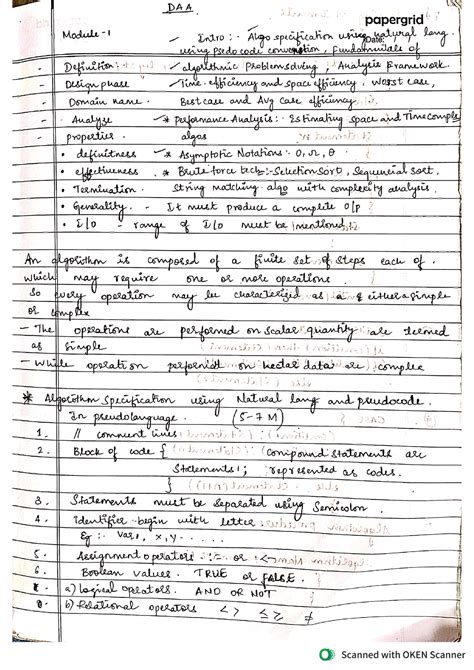 DAA
papergrid
Date:
Module-1
Intro:- Algo specification using natural lang.
using Psedo code convention, Fundamentals of
- Definition algorithmic Problem solving, Analysis Framework.
- Design phase Time efficiency and space efficiency, Worst case,
- Domain name. Best case and Avg case efficiency
- Analyze * Performance Analysis:- Estimating space and Time comple
- properties. algos
• definitness * Asymptotic Notations:- O, Ω, Θ
• effectiveness * Brute force tech:- Selection Sort, Sequencial sort.
• Termination. String matching algo with complexity analysis.
• Generality. - It must produce a complete o/p
• I/O - range of I/O must be mentioned
An algorithm is composed of a finite set of steps each of
which may require one or more operations.
So every operation may be characterized as a either a simple
or complex
- The operations are performed on scalar quantity are termed
as simple
- While operation performed on vector data are complex
* Algorithm specification using Natural lang and pseudocode.
In pseudolanguage. (5-7M)
1. // comment lines
2. Block of code { Compound statements are
Statements 1; represented as codes.
}
3. Statements must be separated using Semicolon.
4. identifier begin with letter.
Eg:- var1, x, y . . . .
5. Assignment operators := or <-
6. Boolean values TRUE or FALSE.
a) logical operators. AND OR NOT
b) Relational operators < > ≤ ≥ ≠
Scanned with OKEN Scanner